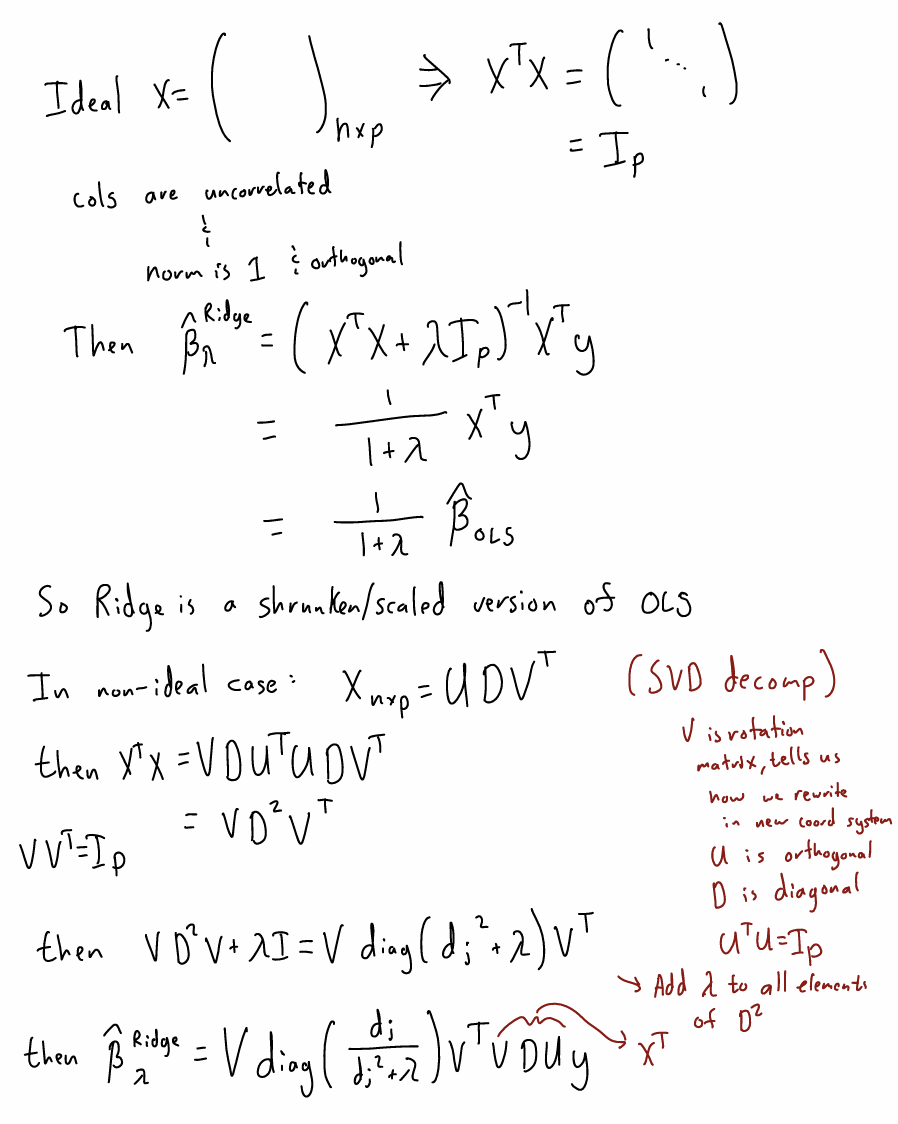 Ideal X = ( )ₙₓₚ ⇒ XᵀX = ( 1 ⋱ 1 )
= Iₚ
cols are uncorrelated
&
norm is 1 & orthogonal
Then β̂_λ^Ridge = (XᵀX + λIₚ)⁻¹Xᵀy
= 1/(1+λ) Xᵀy
= 1/(1+λ) β̂_OLS
So Ridge is a shrunken/scaled version of OLS
In non-ideal case: Xₙₓₚ = UDVᵀ
(SVD decomp)
then XᵀX = VDUᵀUDVᵀ
= VD²Vᵀ
VVᵀ=Iₚ
V is rotation
matrix, tells us
how we rewrite
in new coord system
U is orthogonal
D is diagonal
UᵀU=Iₚ
then VD²V + λI = V diag(dⱼ² + λ)Vᵀ
→ Add λ to all elements
of D²
then β̂_λ^Ridge = V diag(dⱼ/(dⱼ²+λ)) VᵀVDUy
→ Xᵀ